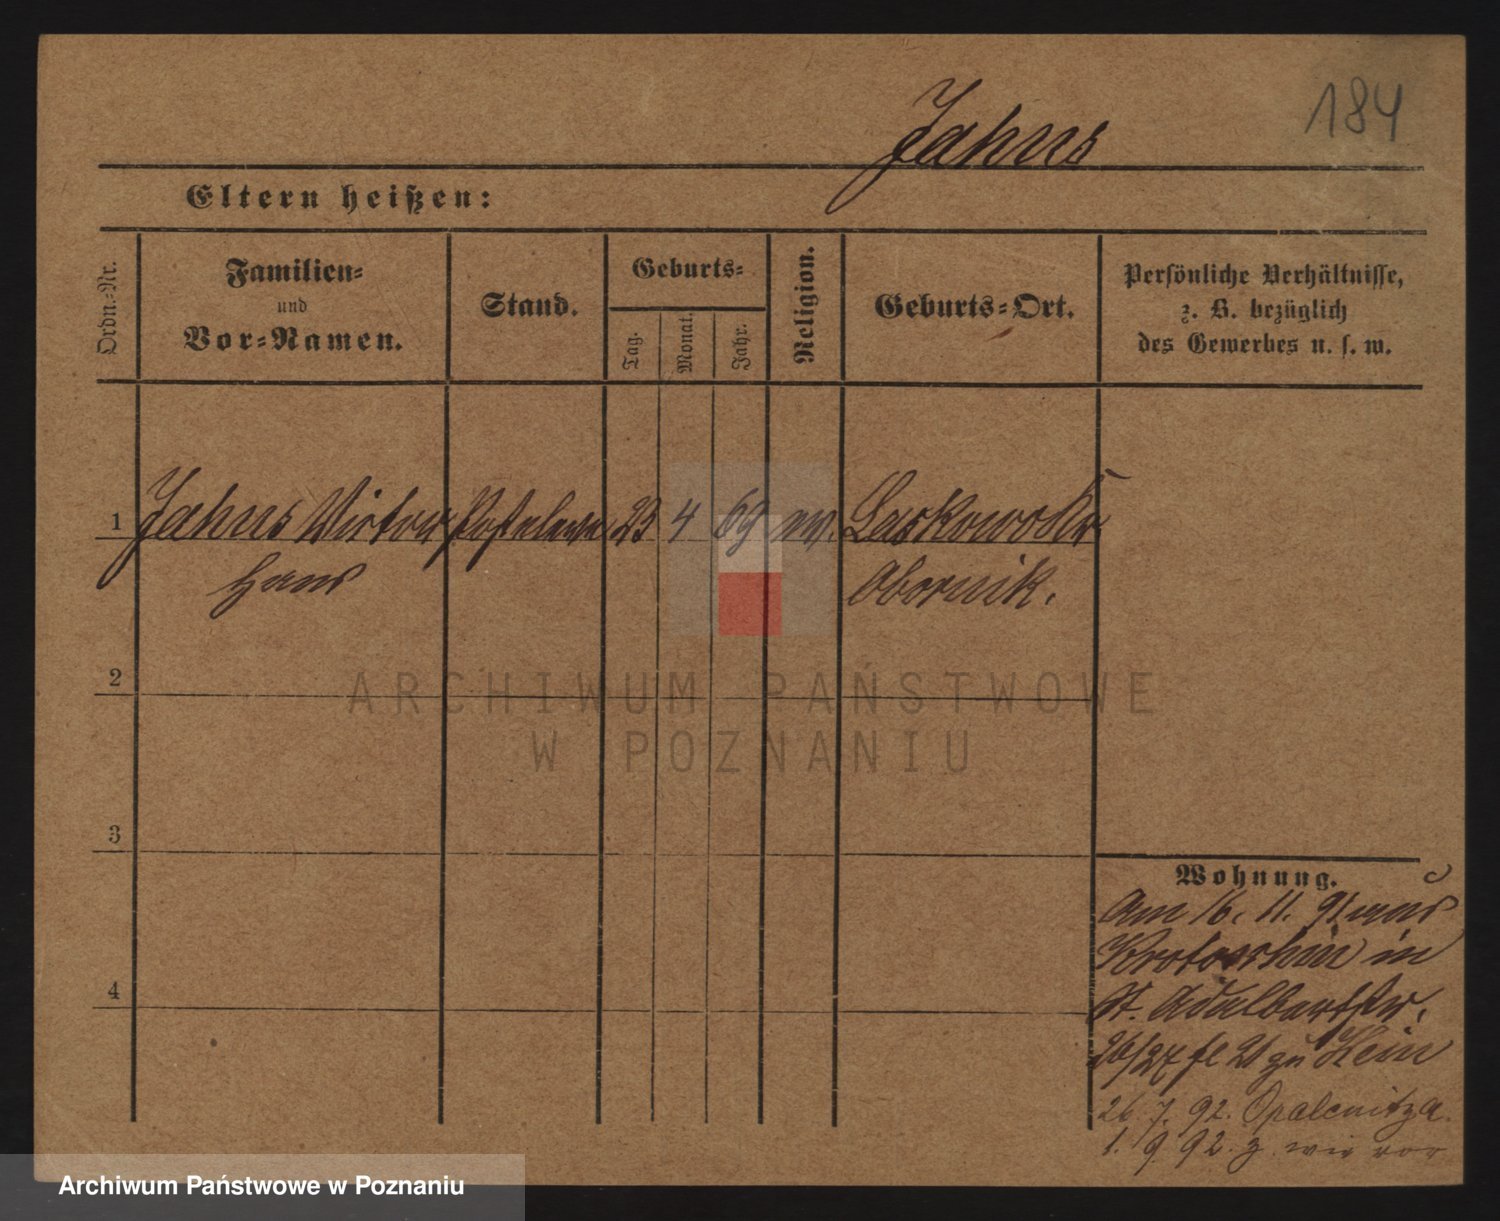 184
Jahns
Eltern heißen:
Ordn.-Nr.
Familien-
und
Vor-Namen.
Stand.
Geburts-
Tag.
Monat.
Jahr.
Religion.
Geburts-Ort.
Persönliche Verhältnisse,
z. B. bezüglich
des Gewerbes u. s. w.
1 Jahns Victor 23 4 69 ev.
Hans Obornik.
2
ARCHIWUM PAŃSTWOWE
W POZNANIU
3
Wohnung.
Am 16. 11. 91 aus
Krotoschin in
St. Adalbertstr.
26/27 zu Hein
26. 7. 92. Opalenitza.
1. 9. 92. z. wie vor
4
Archiwum Państwowe w Poznaniu